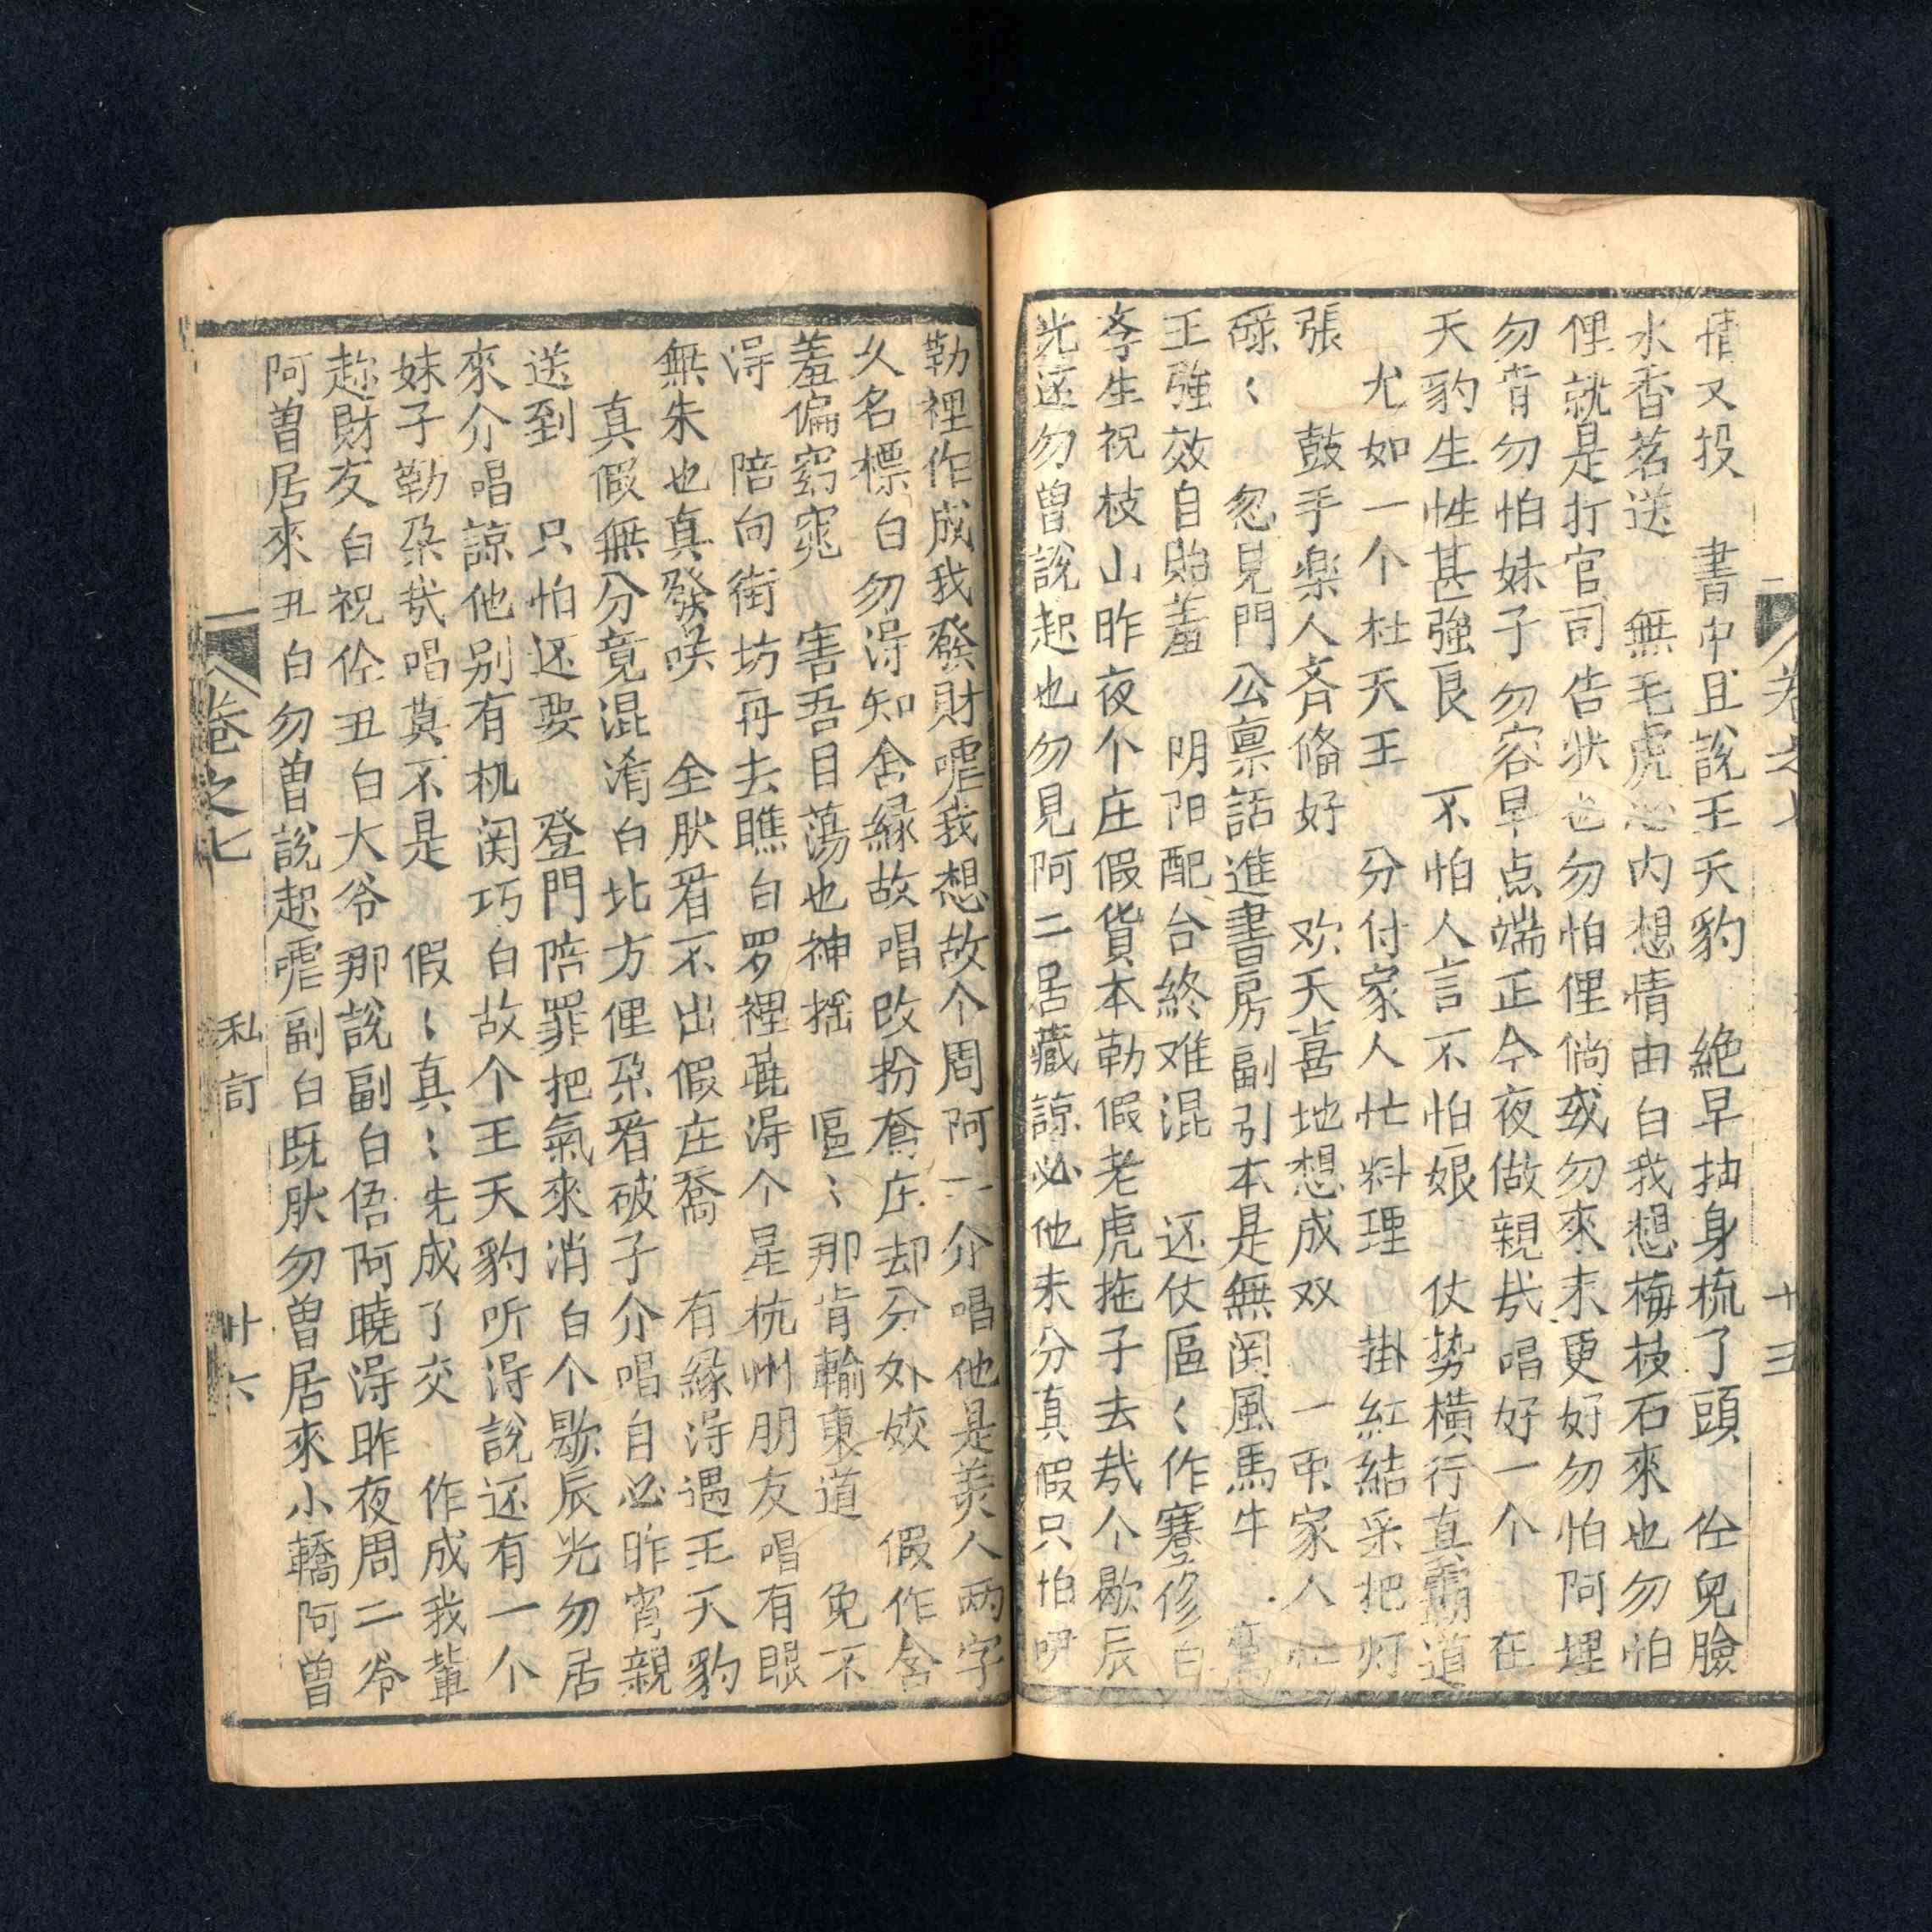 情又投　書中且說王天豹　絶早抽身梳了頭　佺兒臉
水香茗送　無毛虎心内想情由白我想梅枝石來也勿怕
俚就是打官司告状也勿怕俚倘或勿來末更好勿怕阿埋
勿肯勿怕妹子勿容早点端正今夜做親㢤唱好一个　在
天豹生性甚強良　不怕人言不怕娘　仗势橫行直霸道
尤如一个杜天王　分付家人忙料理　掛紅結采把灯
張　鼓手楽人斉偹好　欢天喜地想成双　一帀家人忙
碌〻　忽見門公禀話進書房副引本是無関風馬牛
王強效自貽羞　阴阳配合終难混　还仗區〻作蹇修白
李生祝枝山昨夜个庄假貨本勒假老虎拖子去㢤个歇辰
光还勿曾說起也勿見阿二居藏諒必他未分真假只怕
卷之七　十三
勒裡作成我發財㖸我想故个周阿一介唱他是美人两字
久名標白勿淂知舍緣故唱改扮喬庄却分外姣　假作含
羞偏窈窕　害吾目蕩也神摇　區〻那肯輸東道　免不
淂　陪向街坊再去瞧白罗裡晓淂个星杭州朋友唱有眼
無朱也真發咲　全肰看不出假庄喬　有緣淂遇王天豹
真假無分竟混淆白北方俚朶看破子介唱自必昨宵親
送到　只怕还要　登門陪罪把氣來消白个歇辰光勿居
來介唱諒他别有机関巧白故个王天豹听淂說还有一个
妹子勒朶㢤唱莫不是　假〻真〻先成了交　作成我輩
趂財友白祝佺丑白大爷那說副白俉阿曉淂昨夜周二爷
阿曽居來丑白勿曽說起㖸副白既肰勿曾居來小轎阿曽
卷之七　私訂　廿六